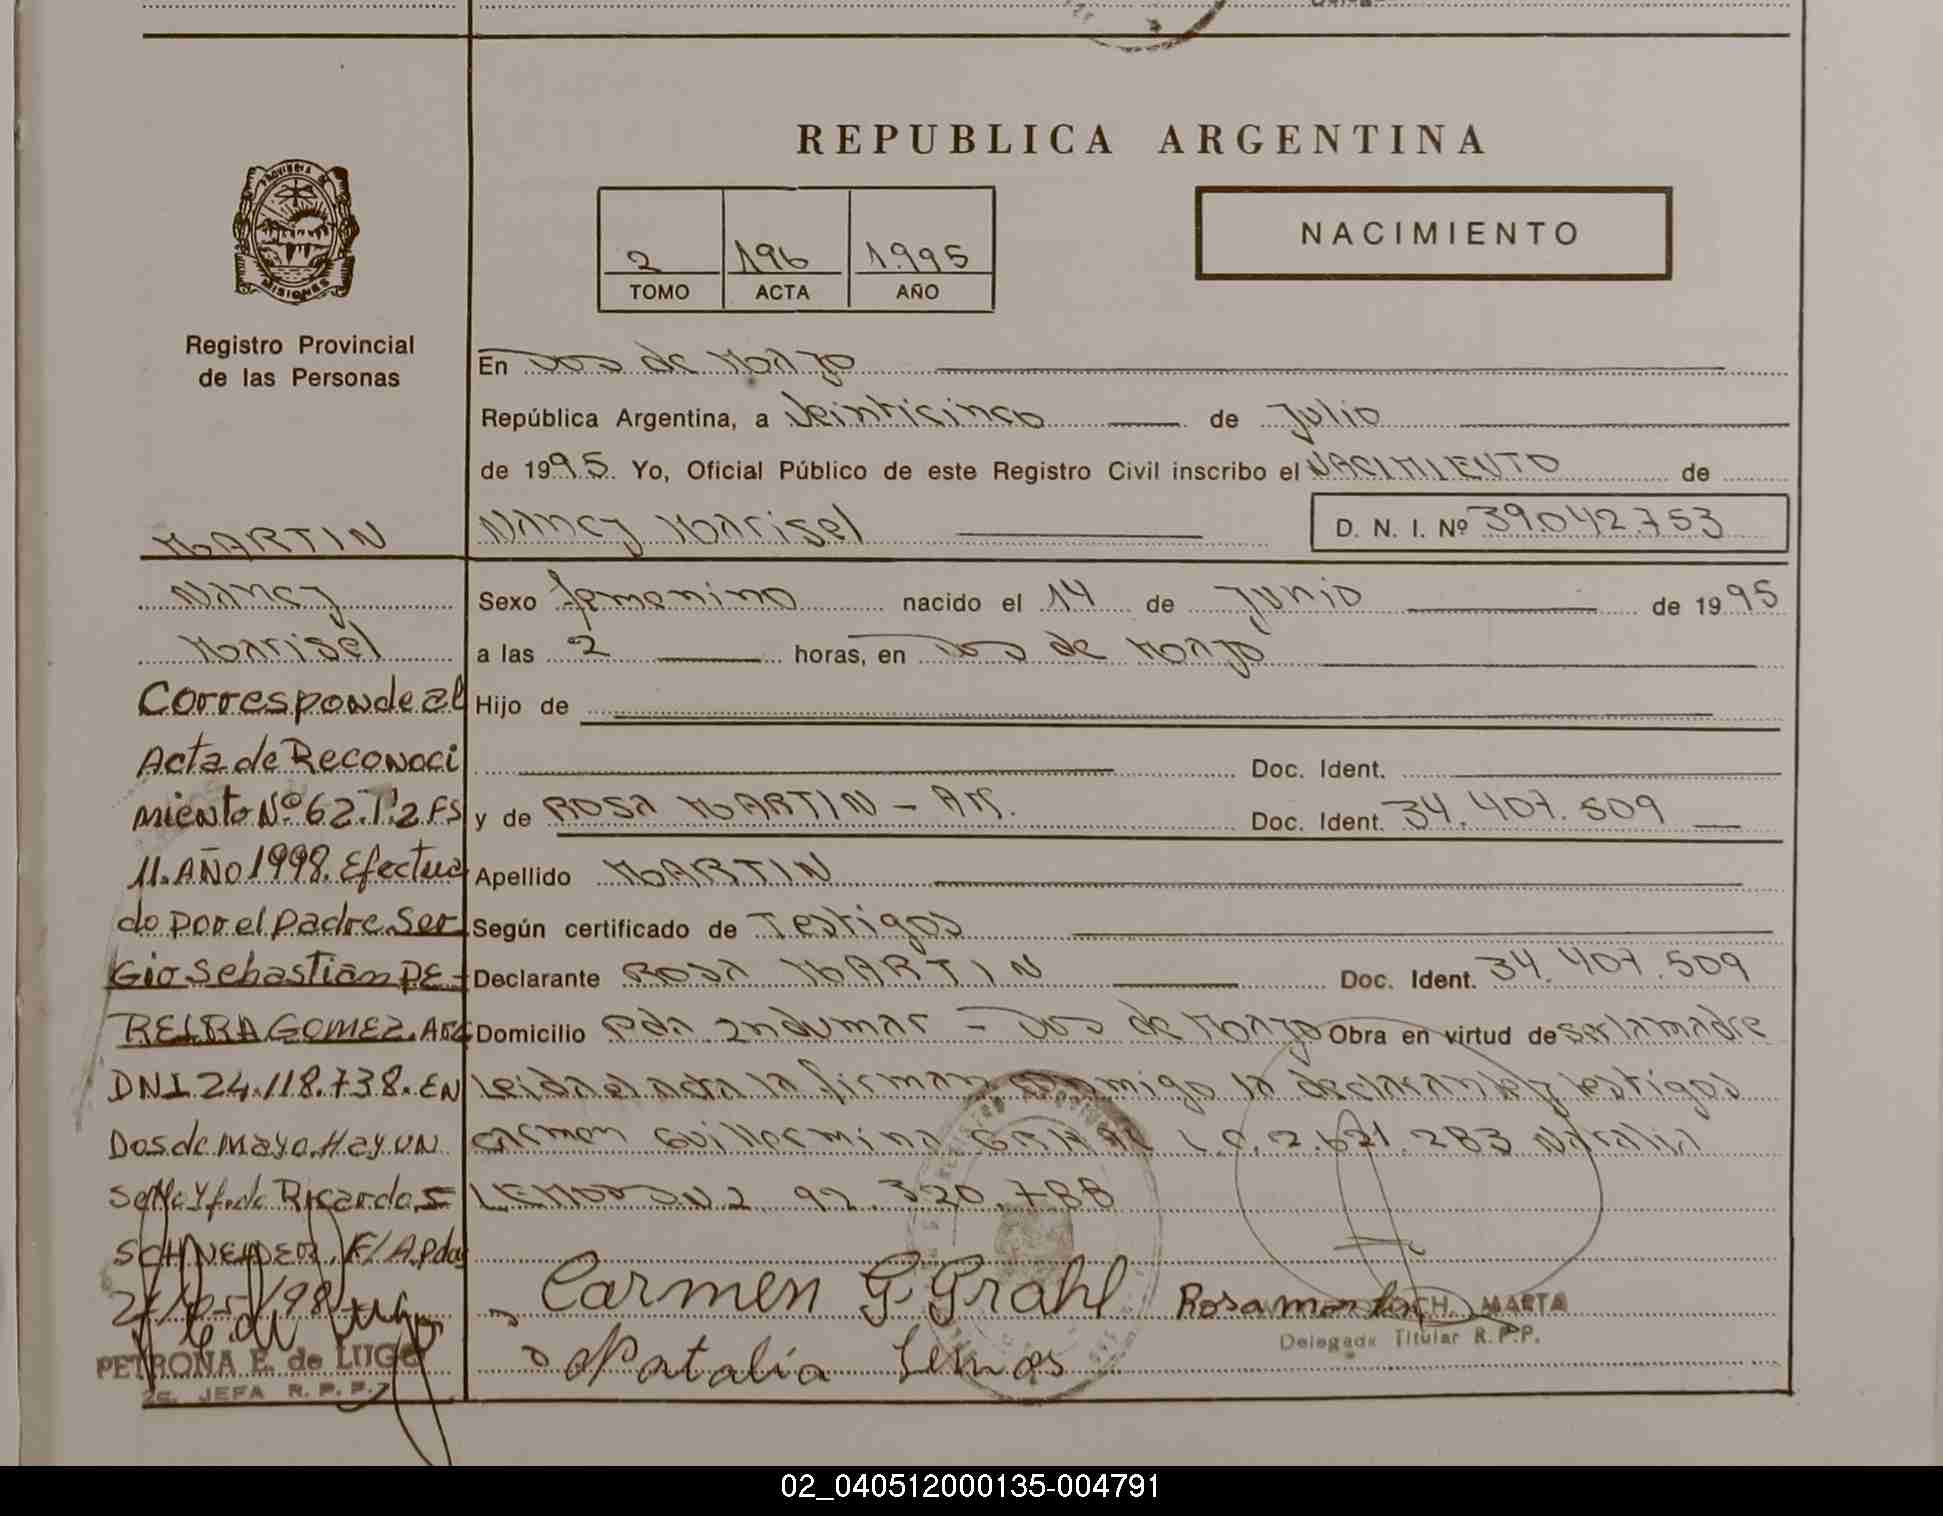 REPUBLICA ARGENTINA
PROVINCIA DE
MISIONES
NACIMIENTO
2 196 1995
TOMO ACTA AÑO
Registro Provincial
de las Personas
En Dos de Mayo
República Argentina, a Veinticinco de Julio
de 1995. Yo, Oficial Público de este Registro Civil inscribo el NACIMIENTO de
Nancy Marisel D. N. I. Nº 39.042.753
Sexo femenino nacido el 14 de Junio de 1995
a las 2 horas, en Dos de Mayo
Hijo de
Doc. Ident.
y de ROSA MARTIN - AR. Doc. Ident. 34.407.509
Apellido MARTIN
Según certificado de Testigos
Declarante ROSA MARTIN Doc. Ident. 34.407.509
Domicilio Pda. Indumar - Dos de Mayo Obra en virtud de ser la madre
Leida el acta la firman conmigo la declarante y testigos
Carmen Guillermina GRAHL L.C. 2.621.283 Natalia
LEMOS D.N.I. 92.320.788
Carmen G. Grahl Rosa martin
CH. MARTA
Delegada Titular R.P.P.
Natalia Lemos
MARTIN
Nancy
Marisel
Corresponde al
Acta de Reconoci
miento Nº 62.Tº2 FS
11. AÑO 1998. Efectua
do por el padre Ser
Gio Sebastian PE-
REIRA GOMEZ. ARG
DNI 24.118.738. EN
Dos de Mayo. Hay un
Sello y fdo Ricardo S
SCHNEIDER. F/ A. Pdas
PETRONA E. de LUGO
JEFA R. P. P.
02_040512000135-004791